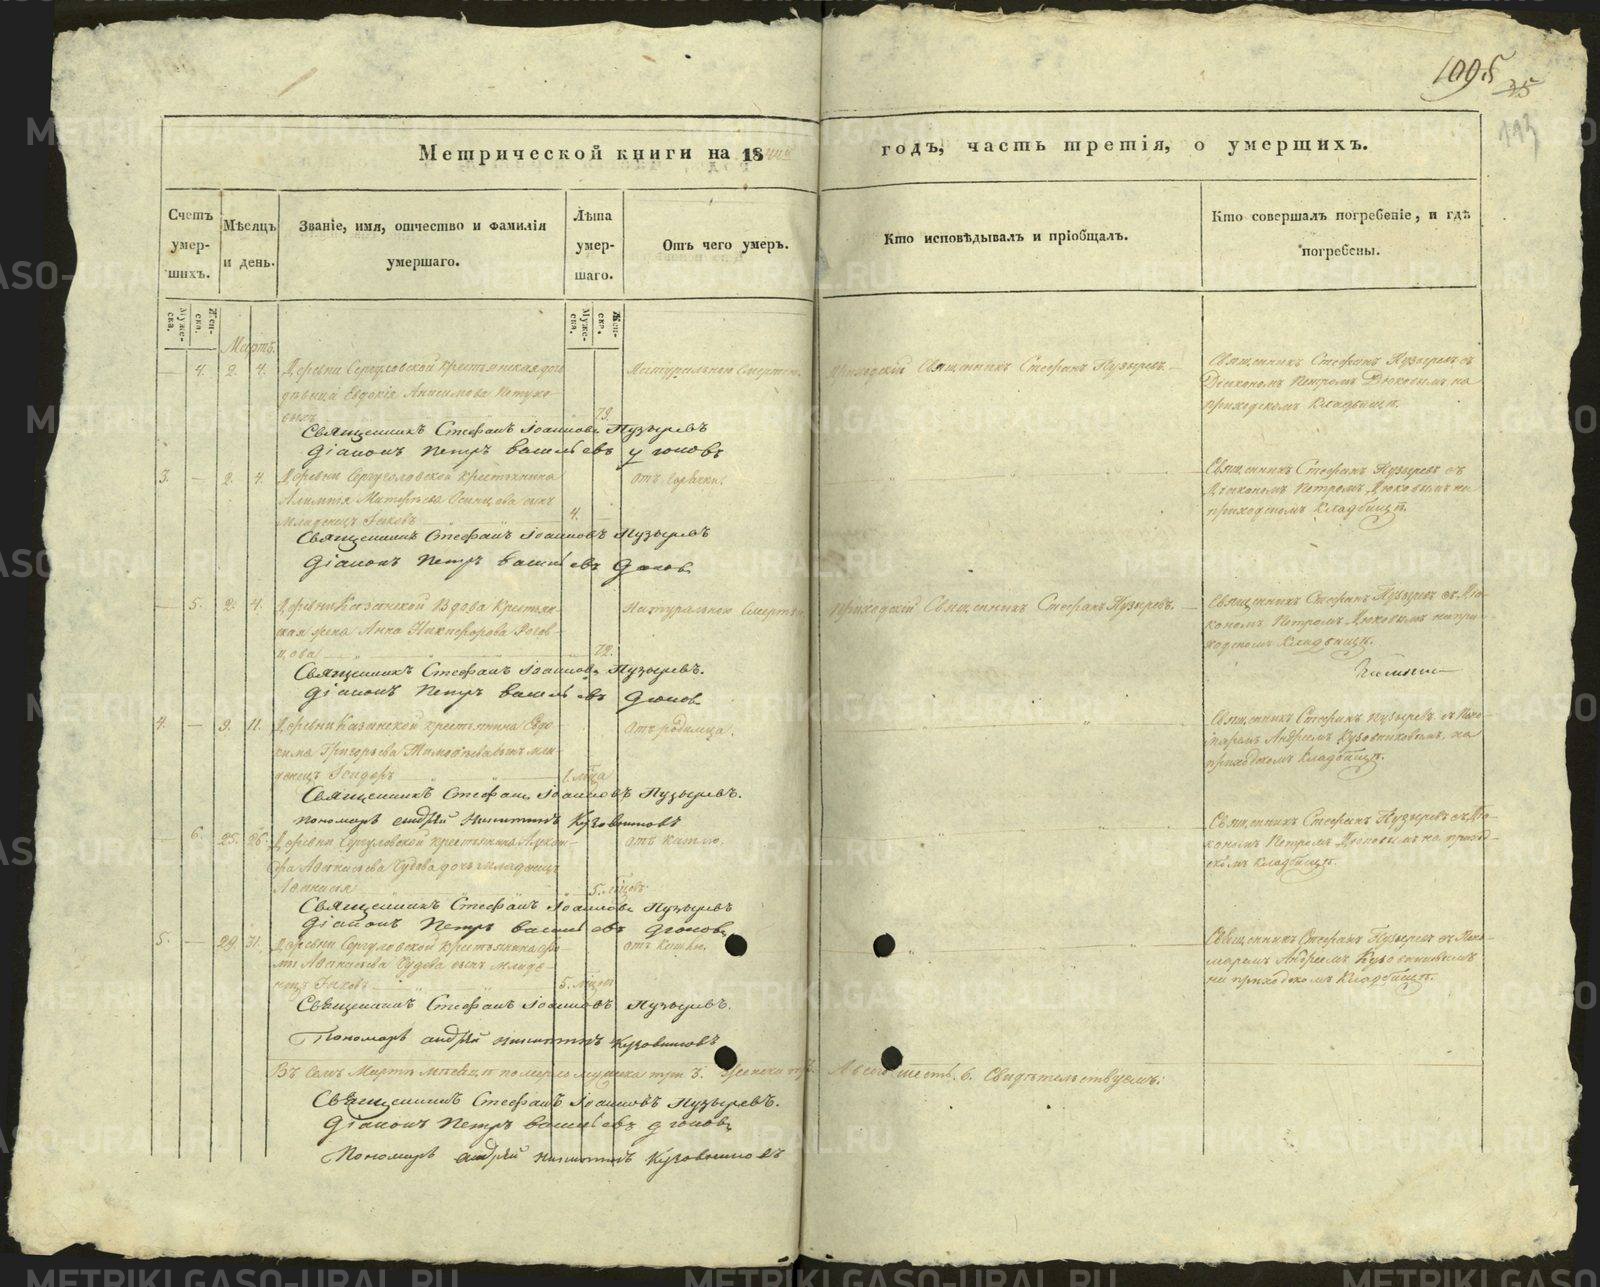 1095
35
193
Метрической книги на 18
годъ, часть третія, о умершихъ.
Счетъ умер-шихъ.
Мѣсяцъ и день.
Званіе, имя, отчество и фамилія умершаго.
Лѣта умер-шаго.
Отъ чего умеръ.
Кто исповѣдывалъ и пріобщалъ.
Кто совершалъ погребеніе, и гдѣ погребены.
Муже-ска.
Жен-ска.
Муже-ска.
Жен-ска.
Мартъ.
4. 2. 4. Деревни Крестьянская
дѣвица Евдокія Анисимова Петухо-
выхъ 73.
Натуральною Смертію.
Приходскій Священникъ Стефанъ Пузыревъ.
Священникъ Стефанъ Пузыревъ съ
Діакономъ Петромъ Дюковымъ на
приходскомъ Кладбищѣ.
Священникъ Стефанъ Іоанновъ Пузыревъ
Діаконъ Петръ Васильевъ Дюковъ
3. 2. 4. Деревни крестьянина
Осинцова сынъ
младенецъ Іаковъ 4.
отъ горячки.
Священникъ Стефанъ Пузыревъ съ
Діакономъ Петромъ Дюковымъ на
приходскомъ Кладбищѣ.
Священникъ Стефанъ Іоанновъ Пузыревъ
Діаконъ Петръ Васильевъ Дюковъ
5. 2. 4. Деревни Казанской Вдова Крестьян-
ская жена Анна Никифорова Рогов-
цова 72.
Натуральною Смертію
Приходскій Священникъ Стефанъ Пузыревъ.
Священникъ Стефанъ Пузыревъ съ Діа-
кономъ Петромъ Дюковымъ на при-
ходскомъ Кладбищѣ.
Священникъ Стефанъ Іоанновъ Пузыревъ.
Діаконъ Петръ Васильевъ Дюковъ
4. 9. 11. Деревни Казанской крестьянина
Григорьева сынъ мла-
денецъ Исидоръ 1. мѣсяца
отъ родимца.
Священникъ Стефанъ Пузыревъ съ Поно-
маремъ Андреемъ Кузовниковымъ, на
приходскомъ Кладбищѣ.
Священникъ Стефанъ Іоанновъ Пузыревъ.
Пономарь Андрей Никитинъ Кузовниковъ
6. 25. 26. Деревни крестьянина
Аѳанасьева Чудова дочь младенецъ
5. мѣсяцовъ
отъ кашлю.
Священникъ Стефанъ Пузыревъ съ Діа-
кономъ Петромъ Дюковымъ на приход-
скомъ Кладбищѣ.
Священникъ Стефанъ Іоанновъ Пузыревъ
Діаконъ Петръ Васильевъ Дюковъ
5. 29. 31. Деревни крестьянина
Аѳанасьева Чудова сынъ младе-
нецъ Іаковъ 5.
отъ кашлю.
Священникъ Стефанъ Пузыревъ съ Поно-
маремъ Андреемъ Кузовниковымъ
на приходскомъ Кладбищѣ.
Священникъ Стефанъ Іоанновъ Пузыревъ.
Пономарь Андрей Никитинъ Кузовниковъ
Въ Семъ Мартѣ мѣсяцѣ померло мужска три 3. женска три. А всего шесть. 6. Свидѣтельствуемъ:
Священникъ Стефанъ Іоанновъ Пузыревъ.
Діаконъ Петръ Васильевъ Дюковъ
Пономарь Андрей Никитинъ Кузовниковъ
METRIKI.GASO-URAL.RU